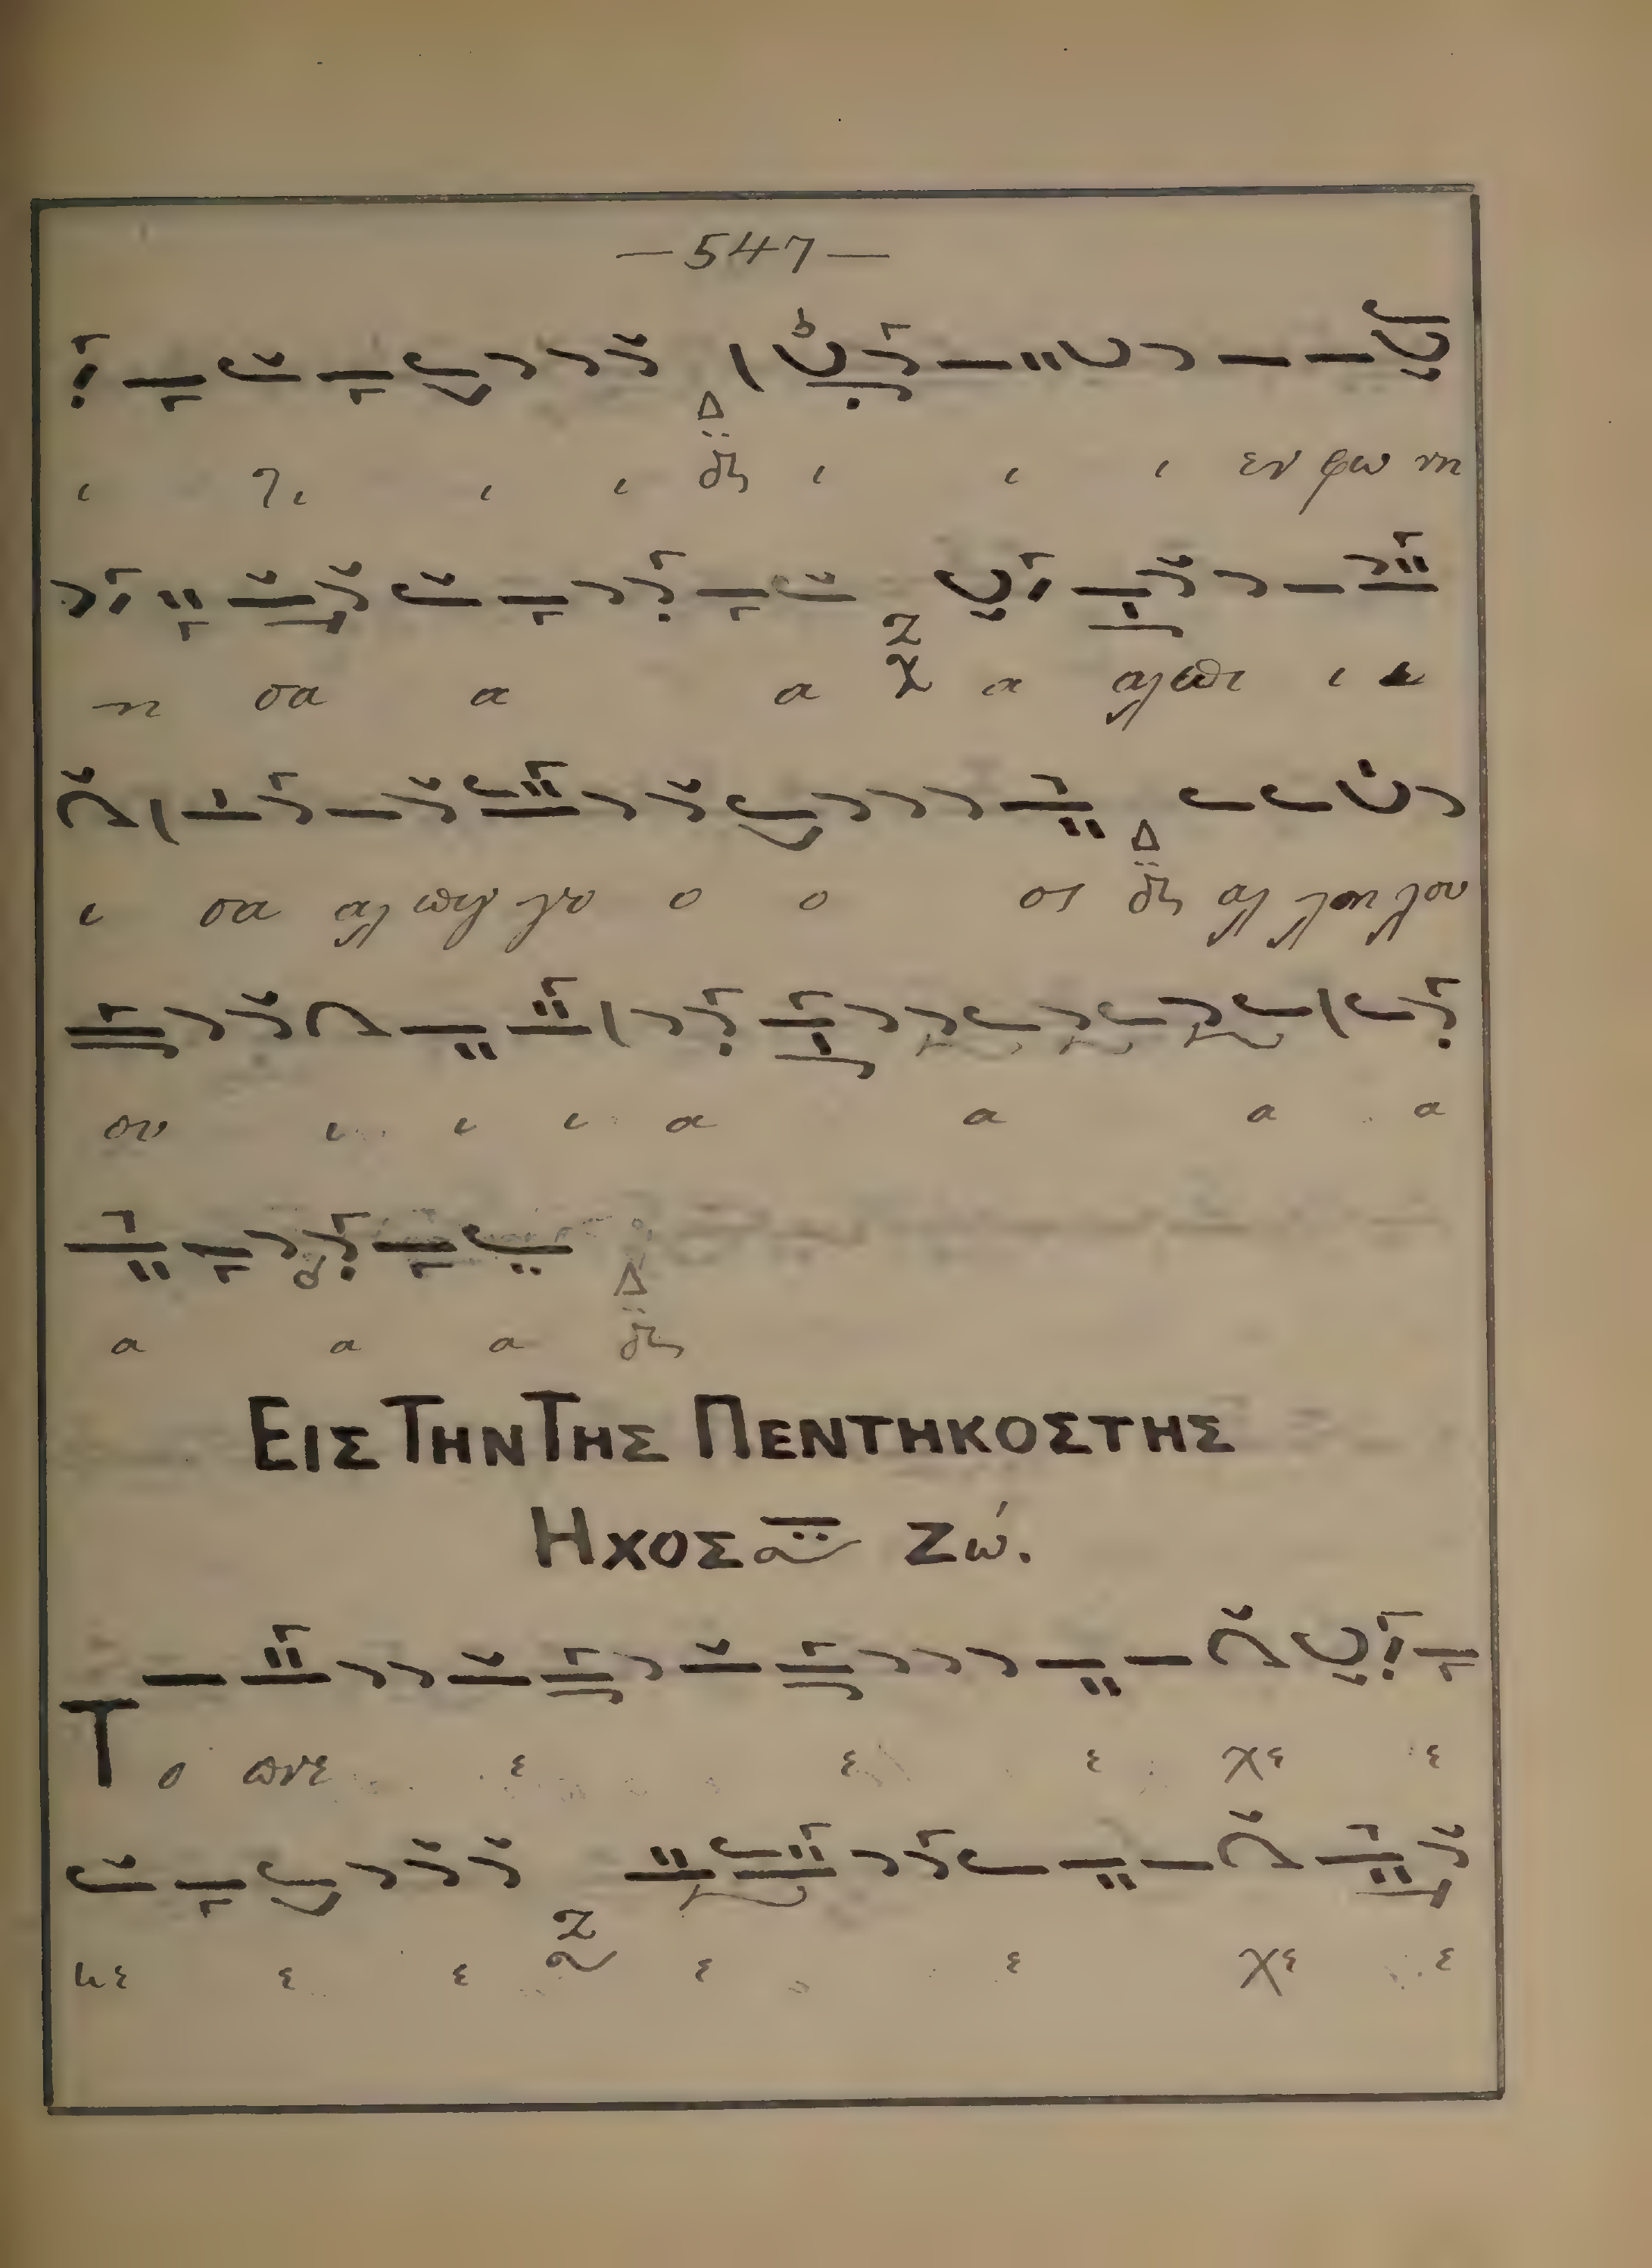 — 547 —
ι γι ι ι Δ ι ι ι εν φω νη
νη σα α α Ζ α αλ πι ι
ι σα αλ πιγ γο ο ο ος Δ αλ λη λου
ου ι ι ι α α α α
α α α Δ
ΕΙΣ ΤΗΝ ΤΗΣ ΠΕΝΤΗΚΟΣΤΗΣ
ΗΧΟΣ Ζώ.
Το πνε ε ε ε χε ε
κε ε ε Ζ ε ε χε ε